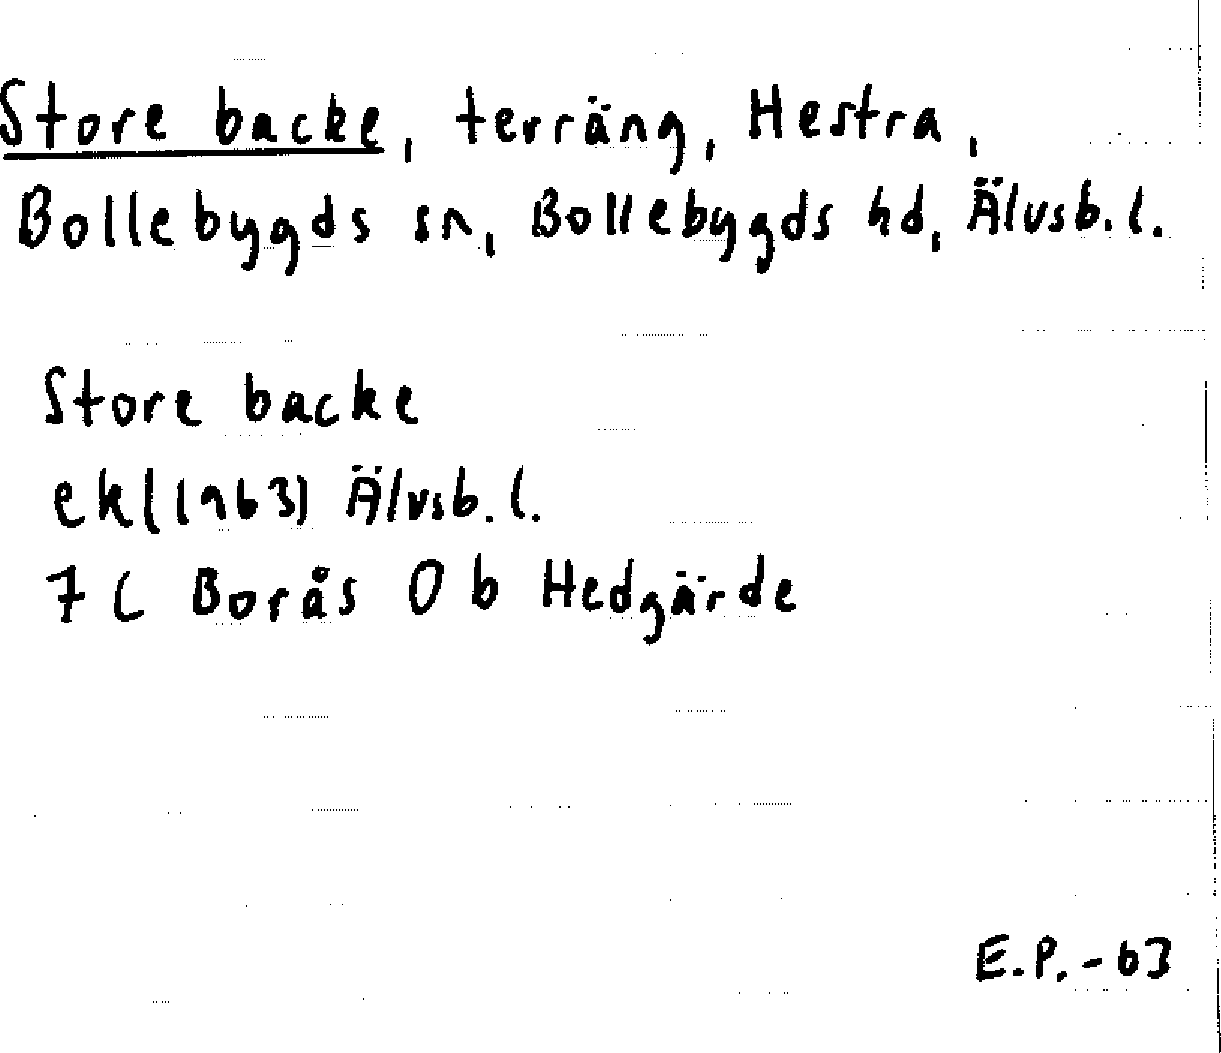 Store backe, terräng, Hestra,
Bollebygds sn, Bollebygds hd, Älvsb. l.
Store backe
ek (1963) Älvsb. l.
7 C Borås 0 b Hedgärde
E.P. - 63